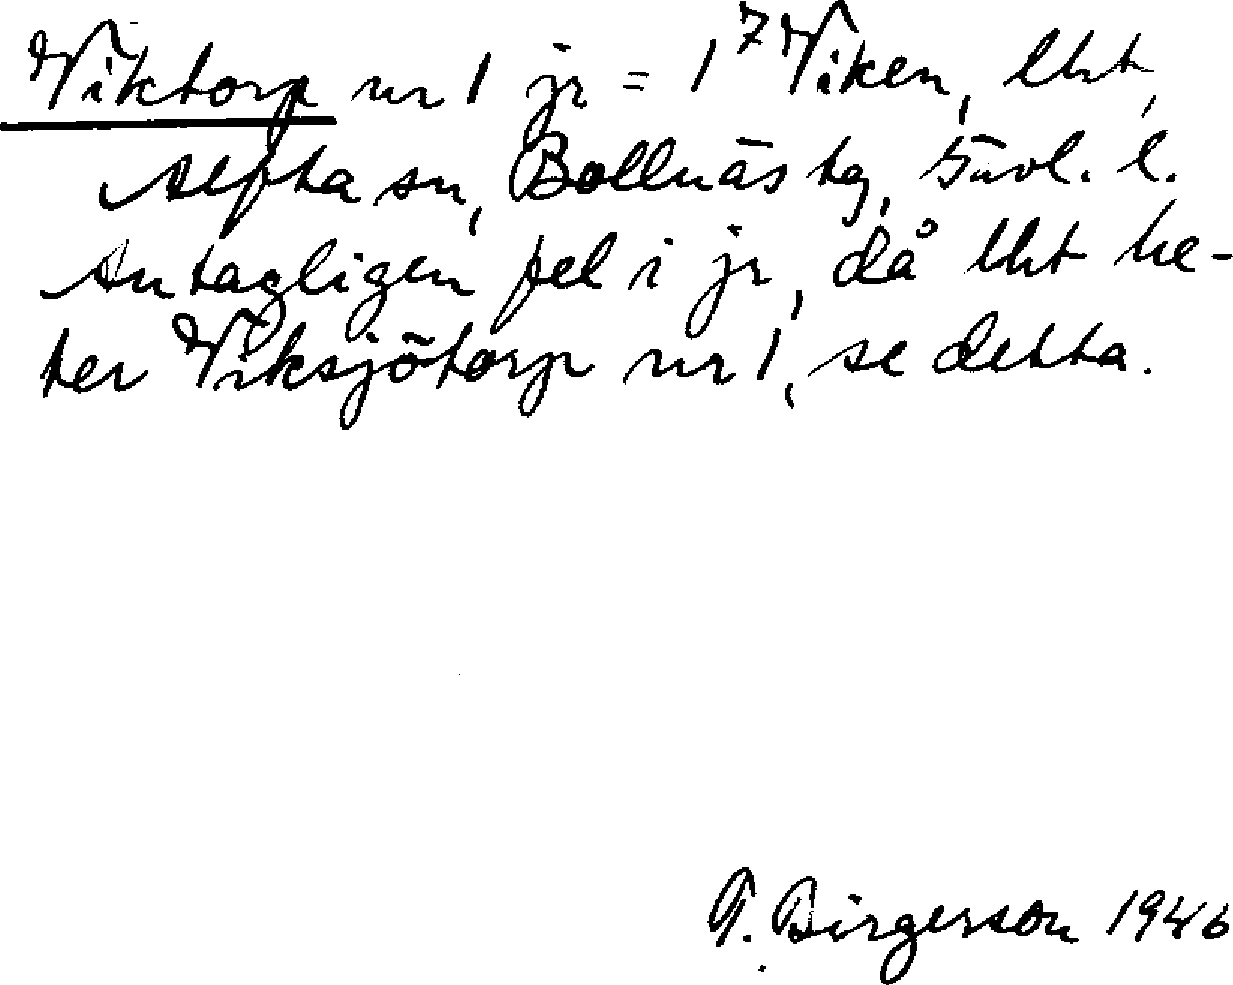 Viktorp nr 1 jr = 1⁷ Viken, lht,
Alfta sn, Bollnäs tg, Gävl. l.
Antagligen fel i jr, då lht he-
ter Viksjötorp nr 1, se detta.
T. Birgerson 1946